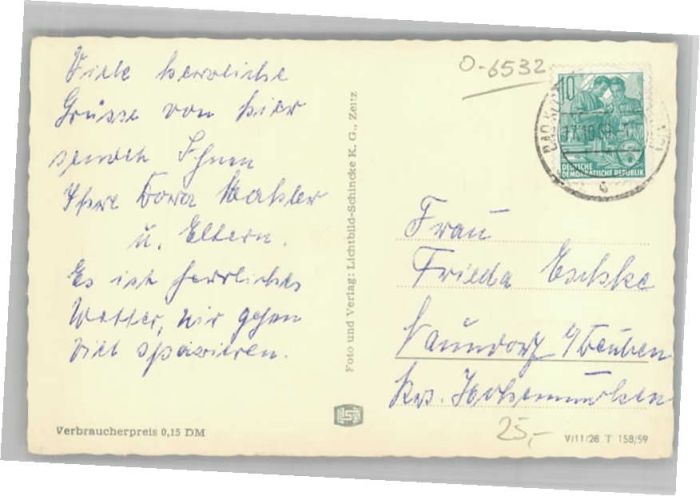 Viele herzliche
Grüsse von hier
senden Ihnen
Ihre Dora Mahler
u. Eltern.
Es ist herrliches
Wetter, wir gehen
viel spazieren.
Verbraucherpreis 0,15 DM
Foto und Verlag: Lichtbild-Schincke K. G., Zeitz
O-6532
10
DEUTSCHE
DEMOKRATISCHE REPUBLIK
BAD
Frau
Frieda Eschke
Naundorf b/Teuben
Krs. Hohenmölsen
25,-
V/11/26 T 158/59